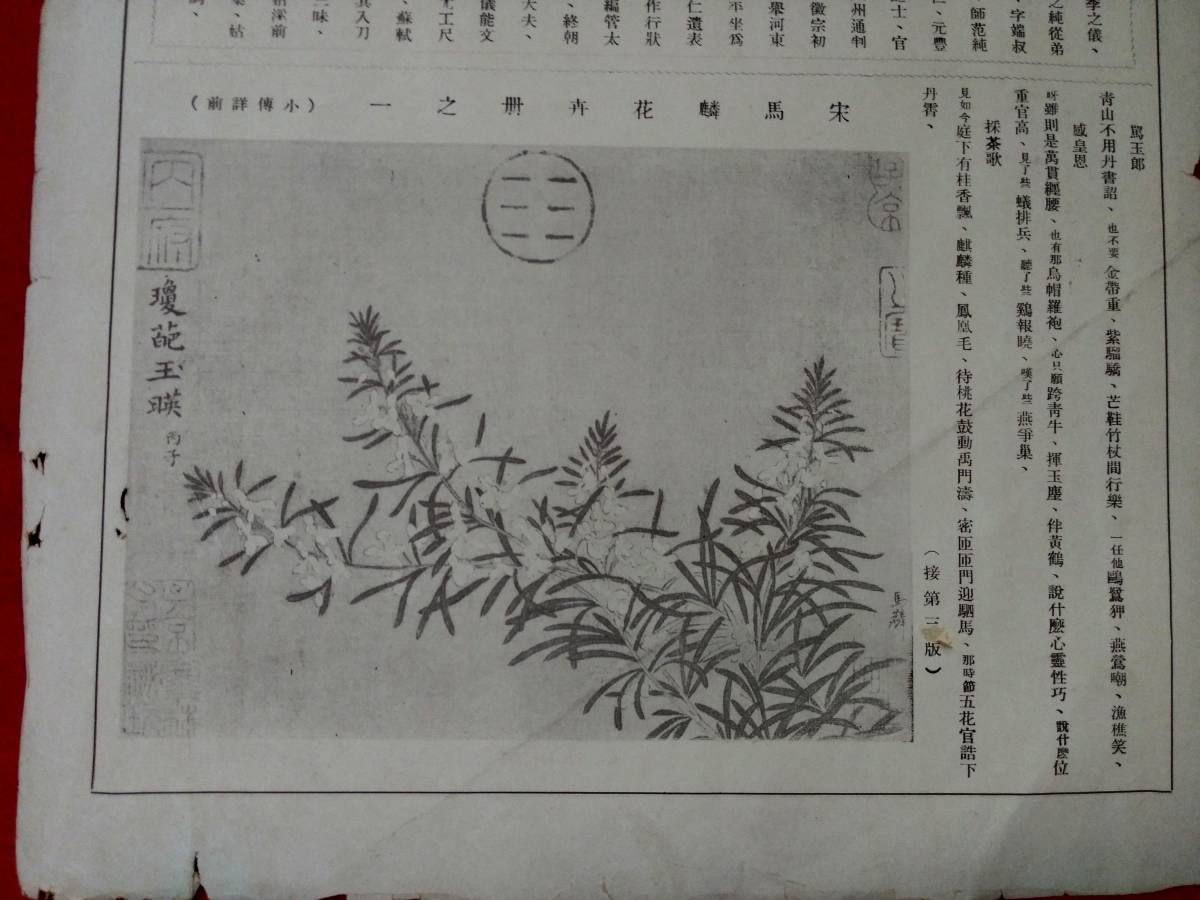 李之儀、
之純從弟
字端叔
師范純
元豐
士、官
州通判
徽宗初
舉河東
平坐爲
仁遺表
作行狀
編管太
、終朝
大夫、
儀能文
尤工尺
、蘇軾
其入刀
三昧、
罵玉郎
青山不用丹書詔、也不要金帶重、紫騮驕、芒鞋竹杖間行樂、一任他鷗鷺狎、燕鶯嘲、漁樵笑、
感皇恩
呀雖則是萬貫纏腰、也有那烏帽羅袍、心只願跨靑牛、揮玉麈、伴黃鶴、說什麽心靈性巧、說什麽位
重官高、見了些蟻排兵、聽了些鷄報曉、嘆了些燕爭巢、
採茶歌
見如今庭下有桂香飄、麒麟種、鳳凰毛、待桃花鼓動禹門濤、密匝匝門迎駟馬、那時節五花官誥下
丹霄、
(接第三版)
宋馬麟花卉册之一
(小傳詳前)
內府
瓊葩玉暎
丙子
馬麟